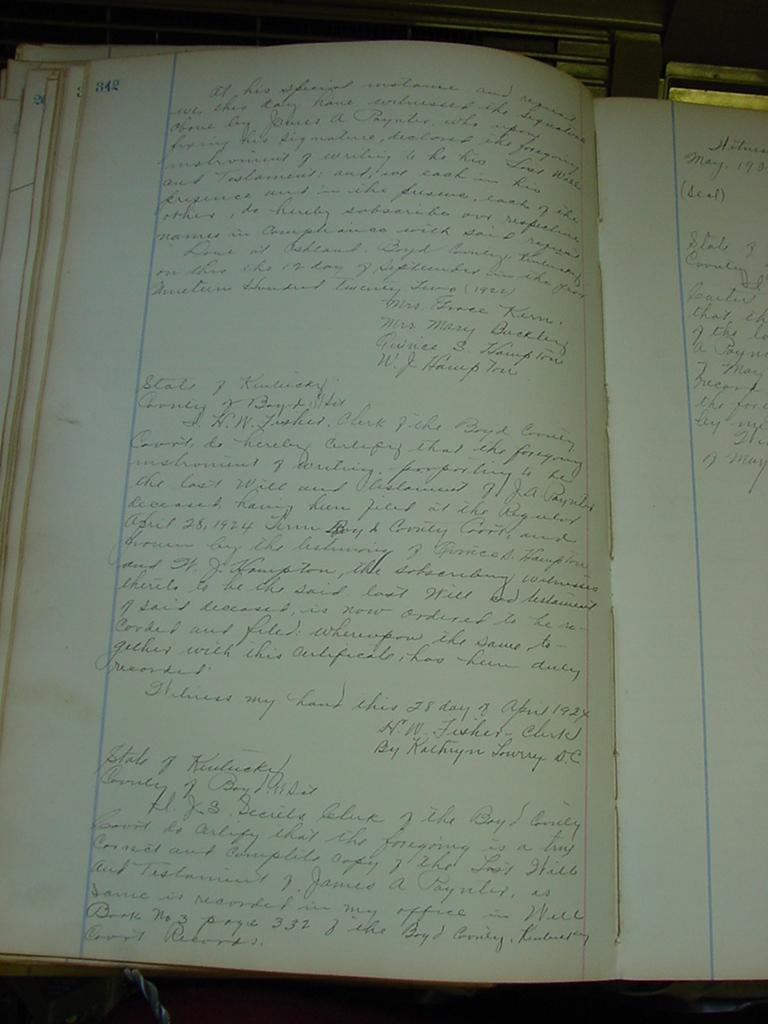 342
At his special instance and request
we, this day have witnessed the signature
above by James A Paynter, who upon
fixing his signature, declared the foregoing
instrument of writing to be his Last Will
and Testament; and, we each in his
presence and in the presence, each of the
other, do hereby subscribe our respective
names in compliance with said request
Done at Ashland, Boyd County, Kentucky
on this the 12 day of September in the year
Nineteen Hundred Twenty Two (1922)
Mrs. Grace Kern.
Mrs. Mary Buckley
Quince S. Hampton
W. J. Hampton
State of Kentucky
County of Boyd, Sct
I. H. W. Fisher, Clerk of the Boyd County
Court, do hereby certify that the foregoing
instrument of writing, purporting to be
the last Will and testament of J. A Paynter
deceased, having been filed at the Regular
April 28, 1924 Term Boyd County Court, and
proven by the testimony of Quince S. Hampton
and W. J. Hampton, the subscribing witnesses
thereto to be the said last Will and testament
of said deceased, is now ordered to be re-
corded and filed; whereupon the same, to-
gether with this certificate, has been duly
recorded.
Witness my hand this 28 day of April 1924
H. W. Fisher - Clerk
By Kathryn Lowry D.C
State of Kentucky
County of Boyd, Sct
I, J. B. Clerk of the Boyd County
Court do certify that the foregoing is a true
correct and complete copy of the Last Will
and Testament of James A Paynter, as
same is recorded in my office in Will
Book No 3 page 332 of the Boyd County, Kentucky
Court Records.
Witness
May. 193
(Seal)
State of
County
Carter
that th
of the la
A Payn
of May
record
the fore
by m
of May